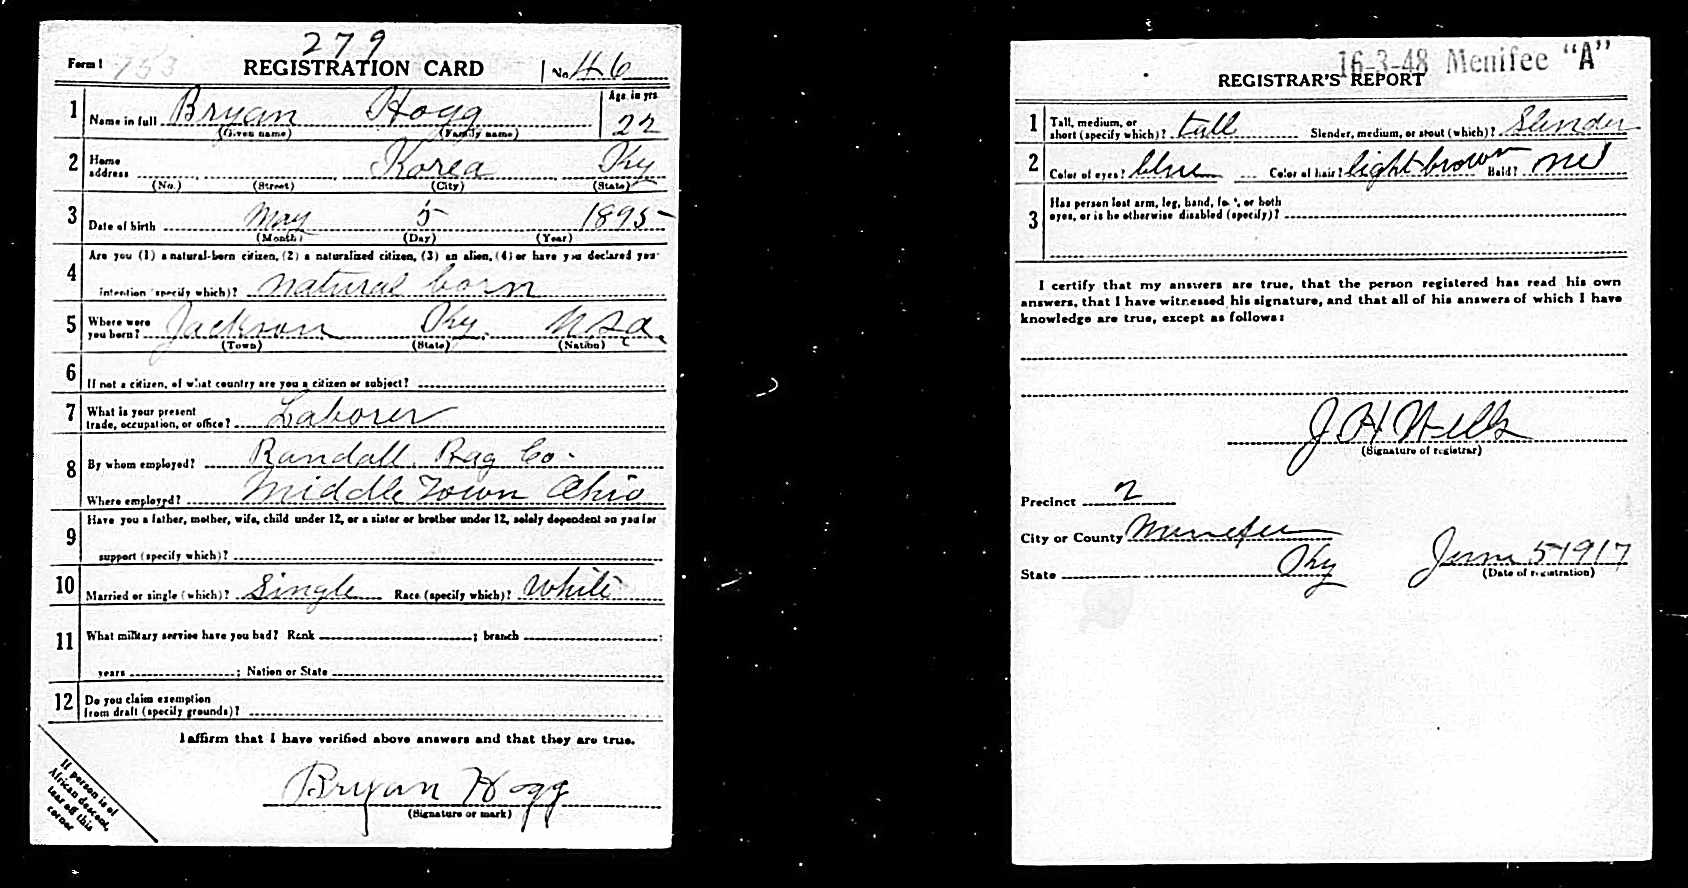 279
Form 1 753 REGISTRATION CARD No. 46
1 Name in full Bryan Hogg Age, in yrs. 22
(Given name) (Family name)
2 Home address Korea Ky
(No.) (Street) (City) (State)
3 Date of birth May 5 1895
(Month) (Day) (Year)
4 Are you (1) a natural-born citizen, (2) a naturalized citizen, (3) an alien, (4) or have you declared your
intention (specify which)? natural born
5 Where were you born? Jackson Ky. USA.
(Town) (State) (Nation)
6 If not a citizen, of what country are you a citizen or subject?
7 What is your present trade, occupation, or office? Laborer
8 By whom employed? Randall Rag Co.
Where employed? Middletown Ohio
9 Have you a father, mother, wife, child under 12, or a sister or brother under 12, solely dependent on you for
support (specify which)?
10 Married or single (which)? Single Race (specify which)? White
11 What military service have you had? Rank ; branch ;
years ; Nation or State
12 Do you claim exemption from draft (specify grounds)?
I affirm that I have verified above answers and that they are true.
Bryan Hogg
(Signature or mark)
If person is of
African descent,
tear off this
corner
16-3-48 Menifee "A"
REGISTRAR'S REPORT
1 Tall, medium, or short (specify which)? tall Slender, medium, or stout (which)? Slender
2 Color of eyes? blue Color of hair? light brown Bald? no
3 Has person lost arm, leg, hand, foot, or both eyes, or is he otherwise disabled (specify)?
I certify that my answers are true, that the person registered has read his own
answers, that I have witnessed his signature, and that all of his answers of which I have
knowledge are true, except as follows:
J. H. Wells
(Signature of registrar)
Precinct 2
City or County Menifee
State Ky June 5 1917
(Date of registration)